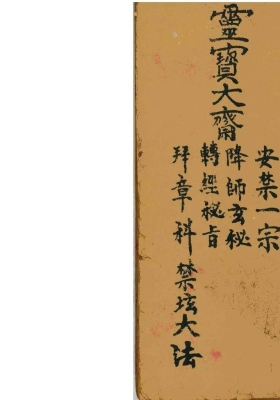 安禁一宗
降師玄秘
靈寶大齋
轉經秘旨
拜章科禁坛大法